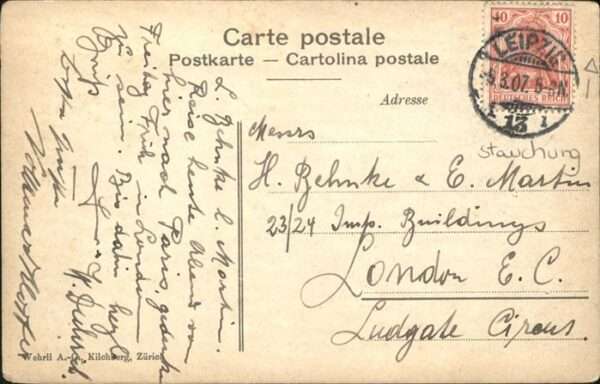 Carte postale
Postkarte — Cartolina postale
Adresse
10 10
DEUTSCHES REICH
LEIPZIG
3.07. 5-6N
13
Stauchung
Messrs
H. Behnke & E. Martin
23/24 Imp. Buildings
London E.C.
Ludgate Circus.
L. Behnke & Martin.
Reise heute Abend von
hier nach Paris, gedenke
Freitag Früh in London
zu sein. Bis dahin herzl
Gruß
Wehrli A.-G., Kilchberg, Zürich